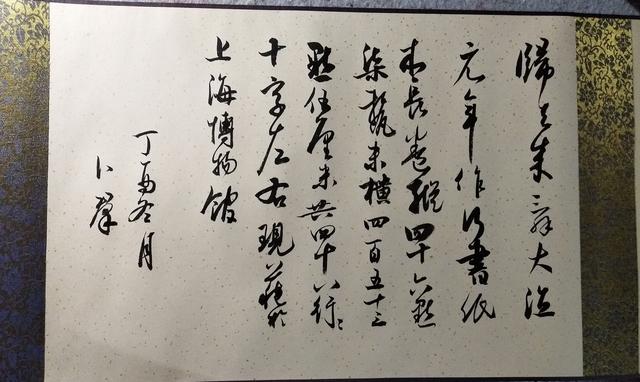 歸去来辭大德
元年作行書紙
本長卷縱四十六點
柒釐米橫四百五十三
點伍厘米共四十八行行
十字左右現藏於
上海博物館
丁酉冬月
卜群